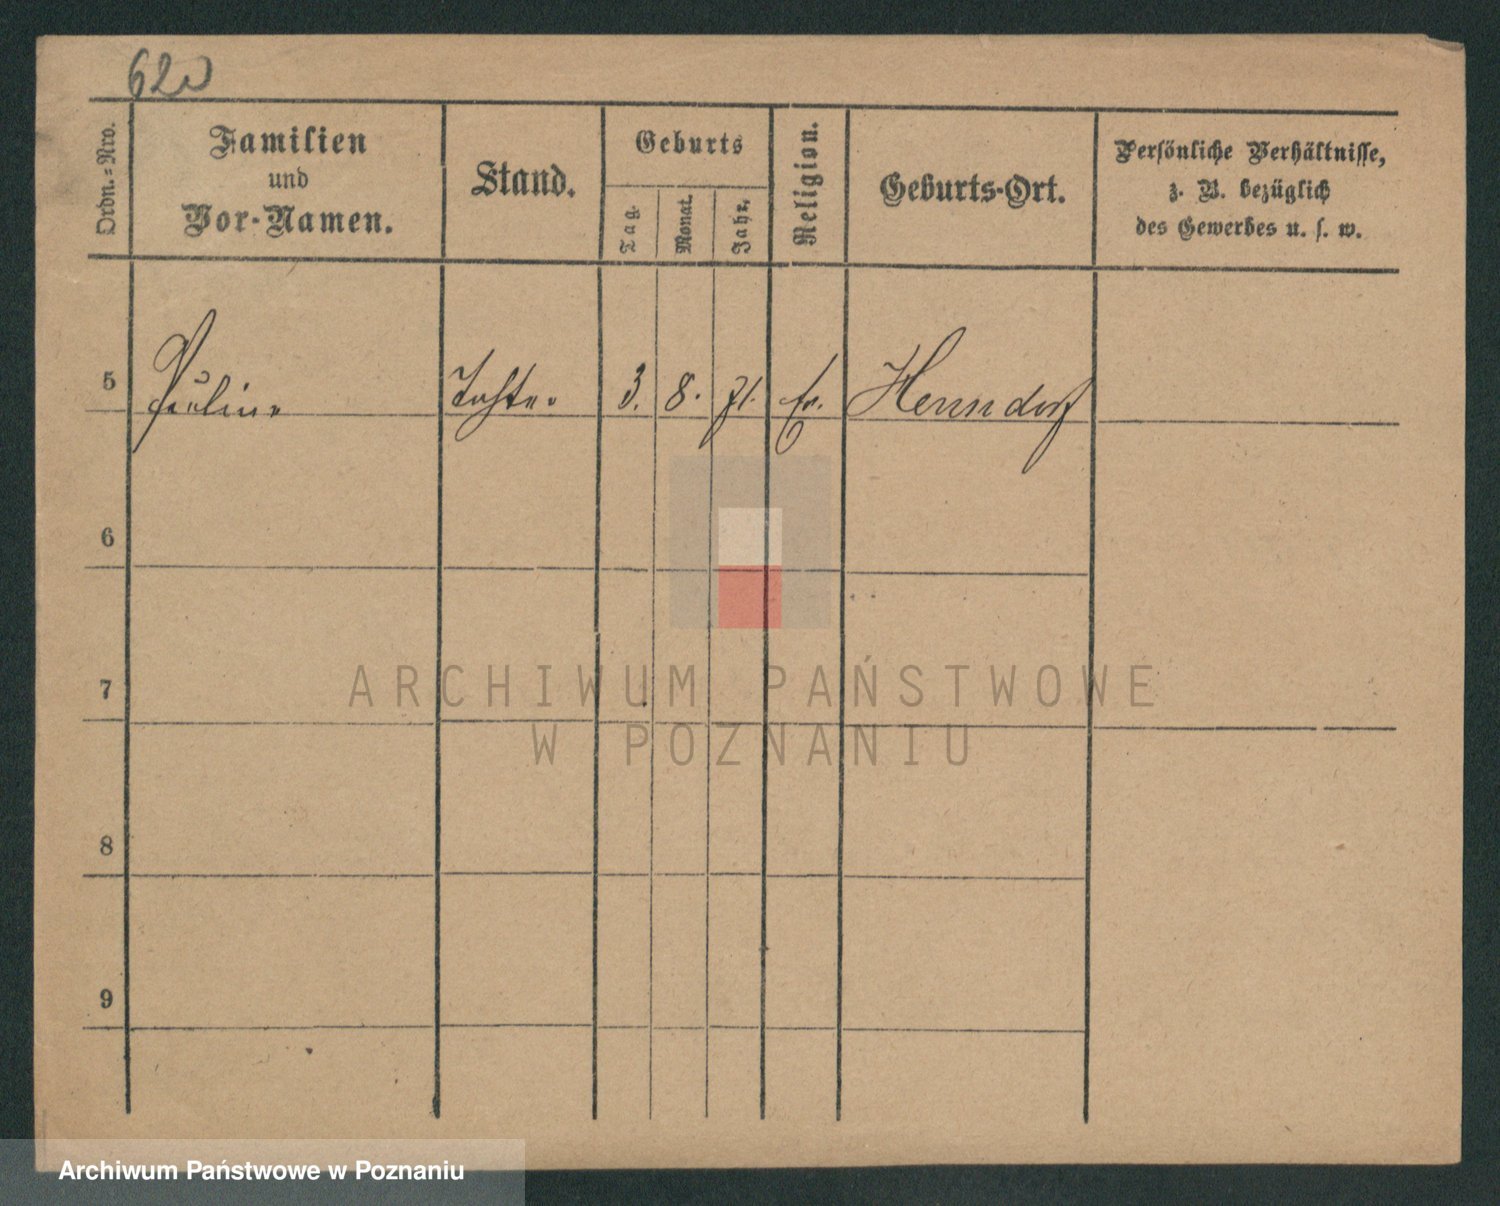 620
Ordn.-Nro.
Familien
und
Vor-Namen.
Stand.
Geburts
Tag.
Monat.
Jahr.
Religion.
Geburts-Ort.
Persönliche Verhältnisse,
z. B. bezüglich
des Gewerbes u. s. w.
5 Pauline Tochter 3. 8. 71. Ev.
6
7
8
9
ARCHIWUM PAŃSTWOWE
W POZNANIU
Archiwum Państwowe w Poznaniu